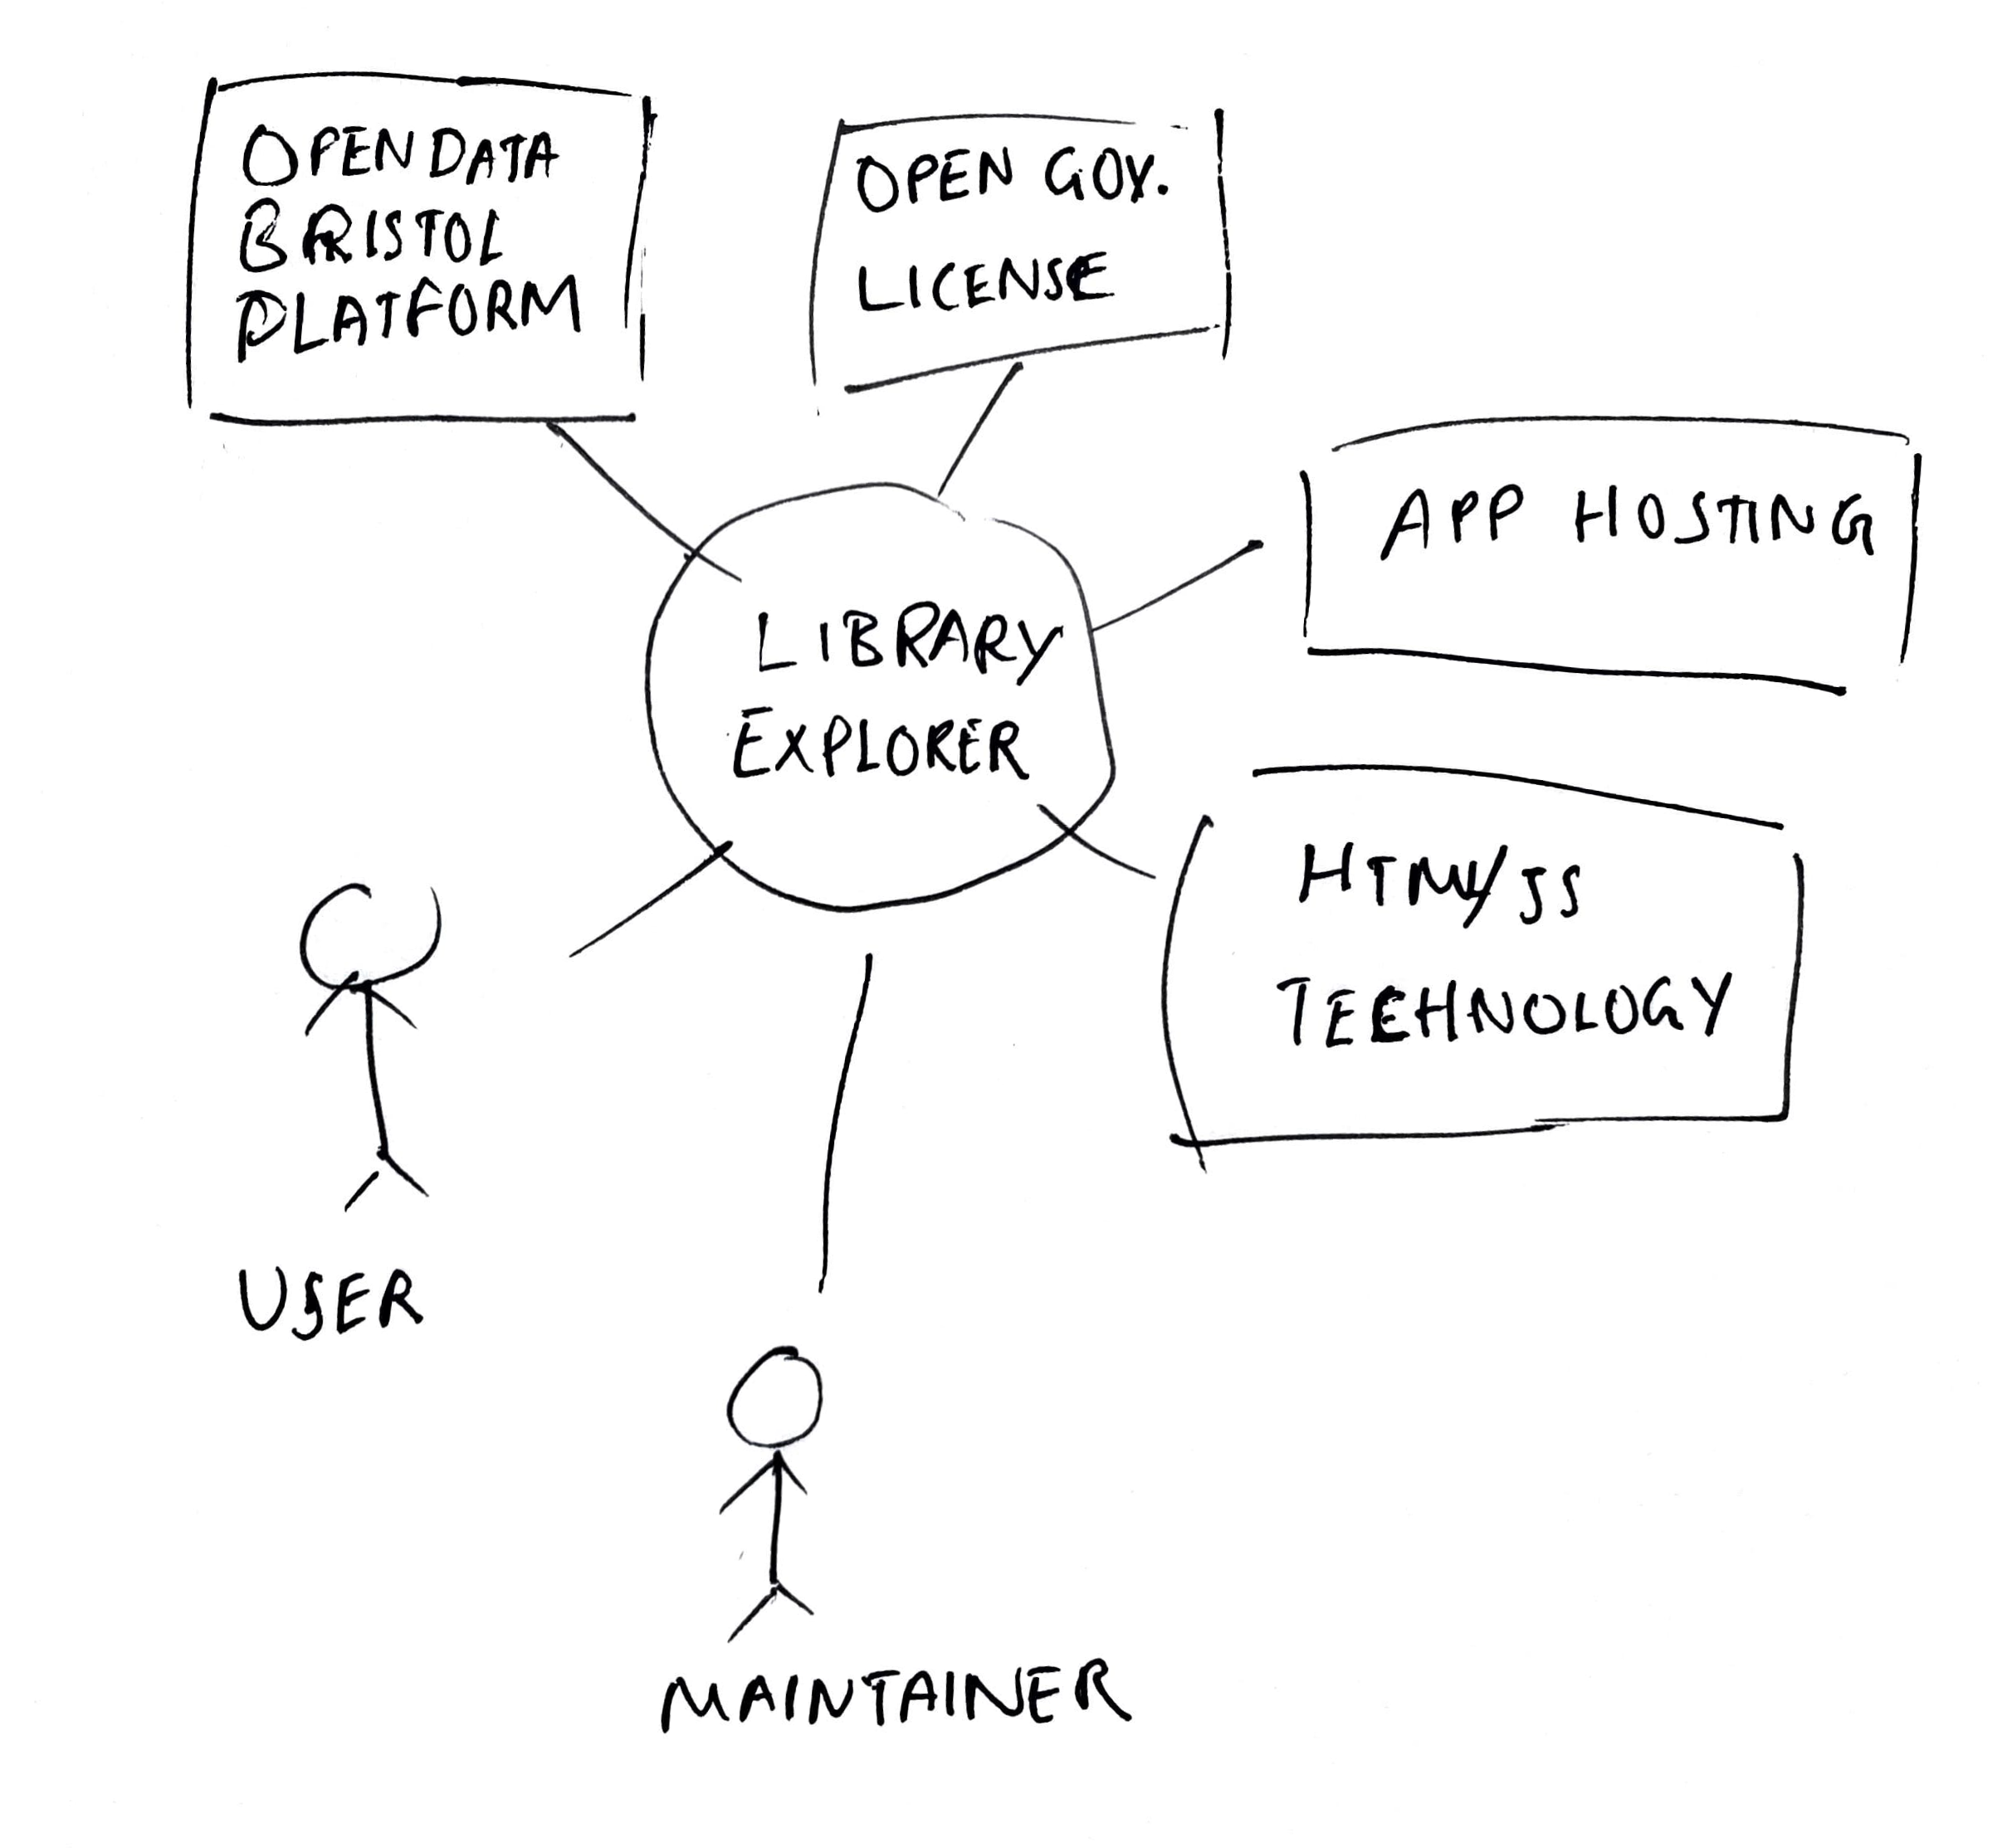 OPEN DATA
BRISTOL
PLATFORM
OPEN GOV.
LICENSE
APP HOSTING
LIBRARY
EXPLORER
HTML/JS
TECHNOLOGY
USER
MAINTAINER